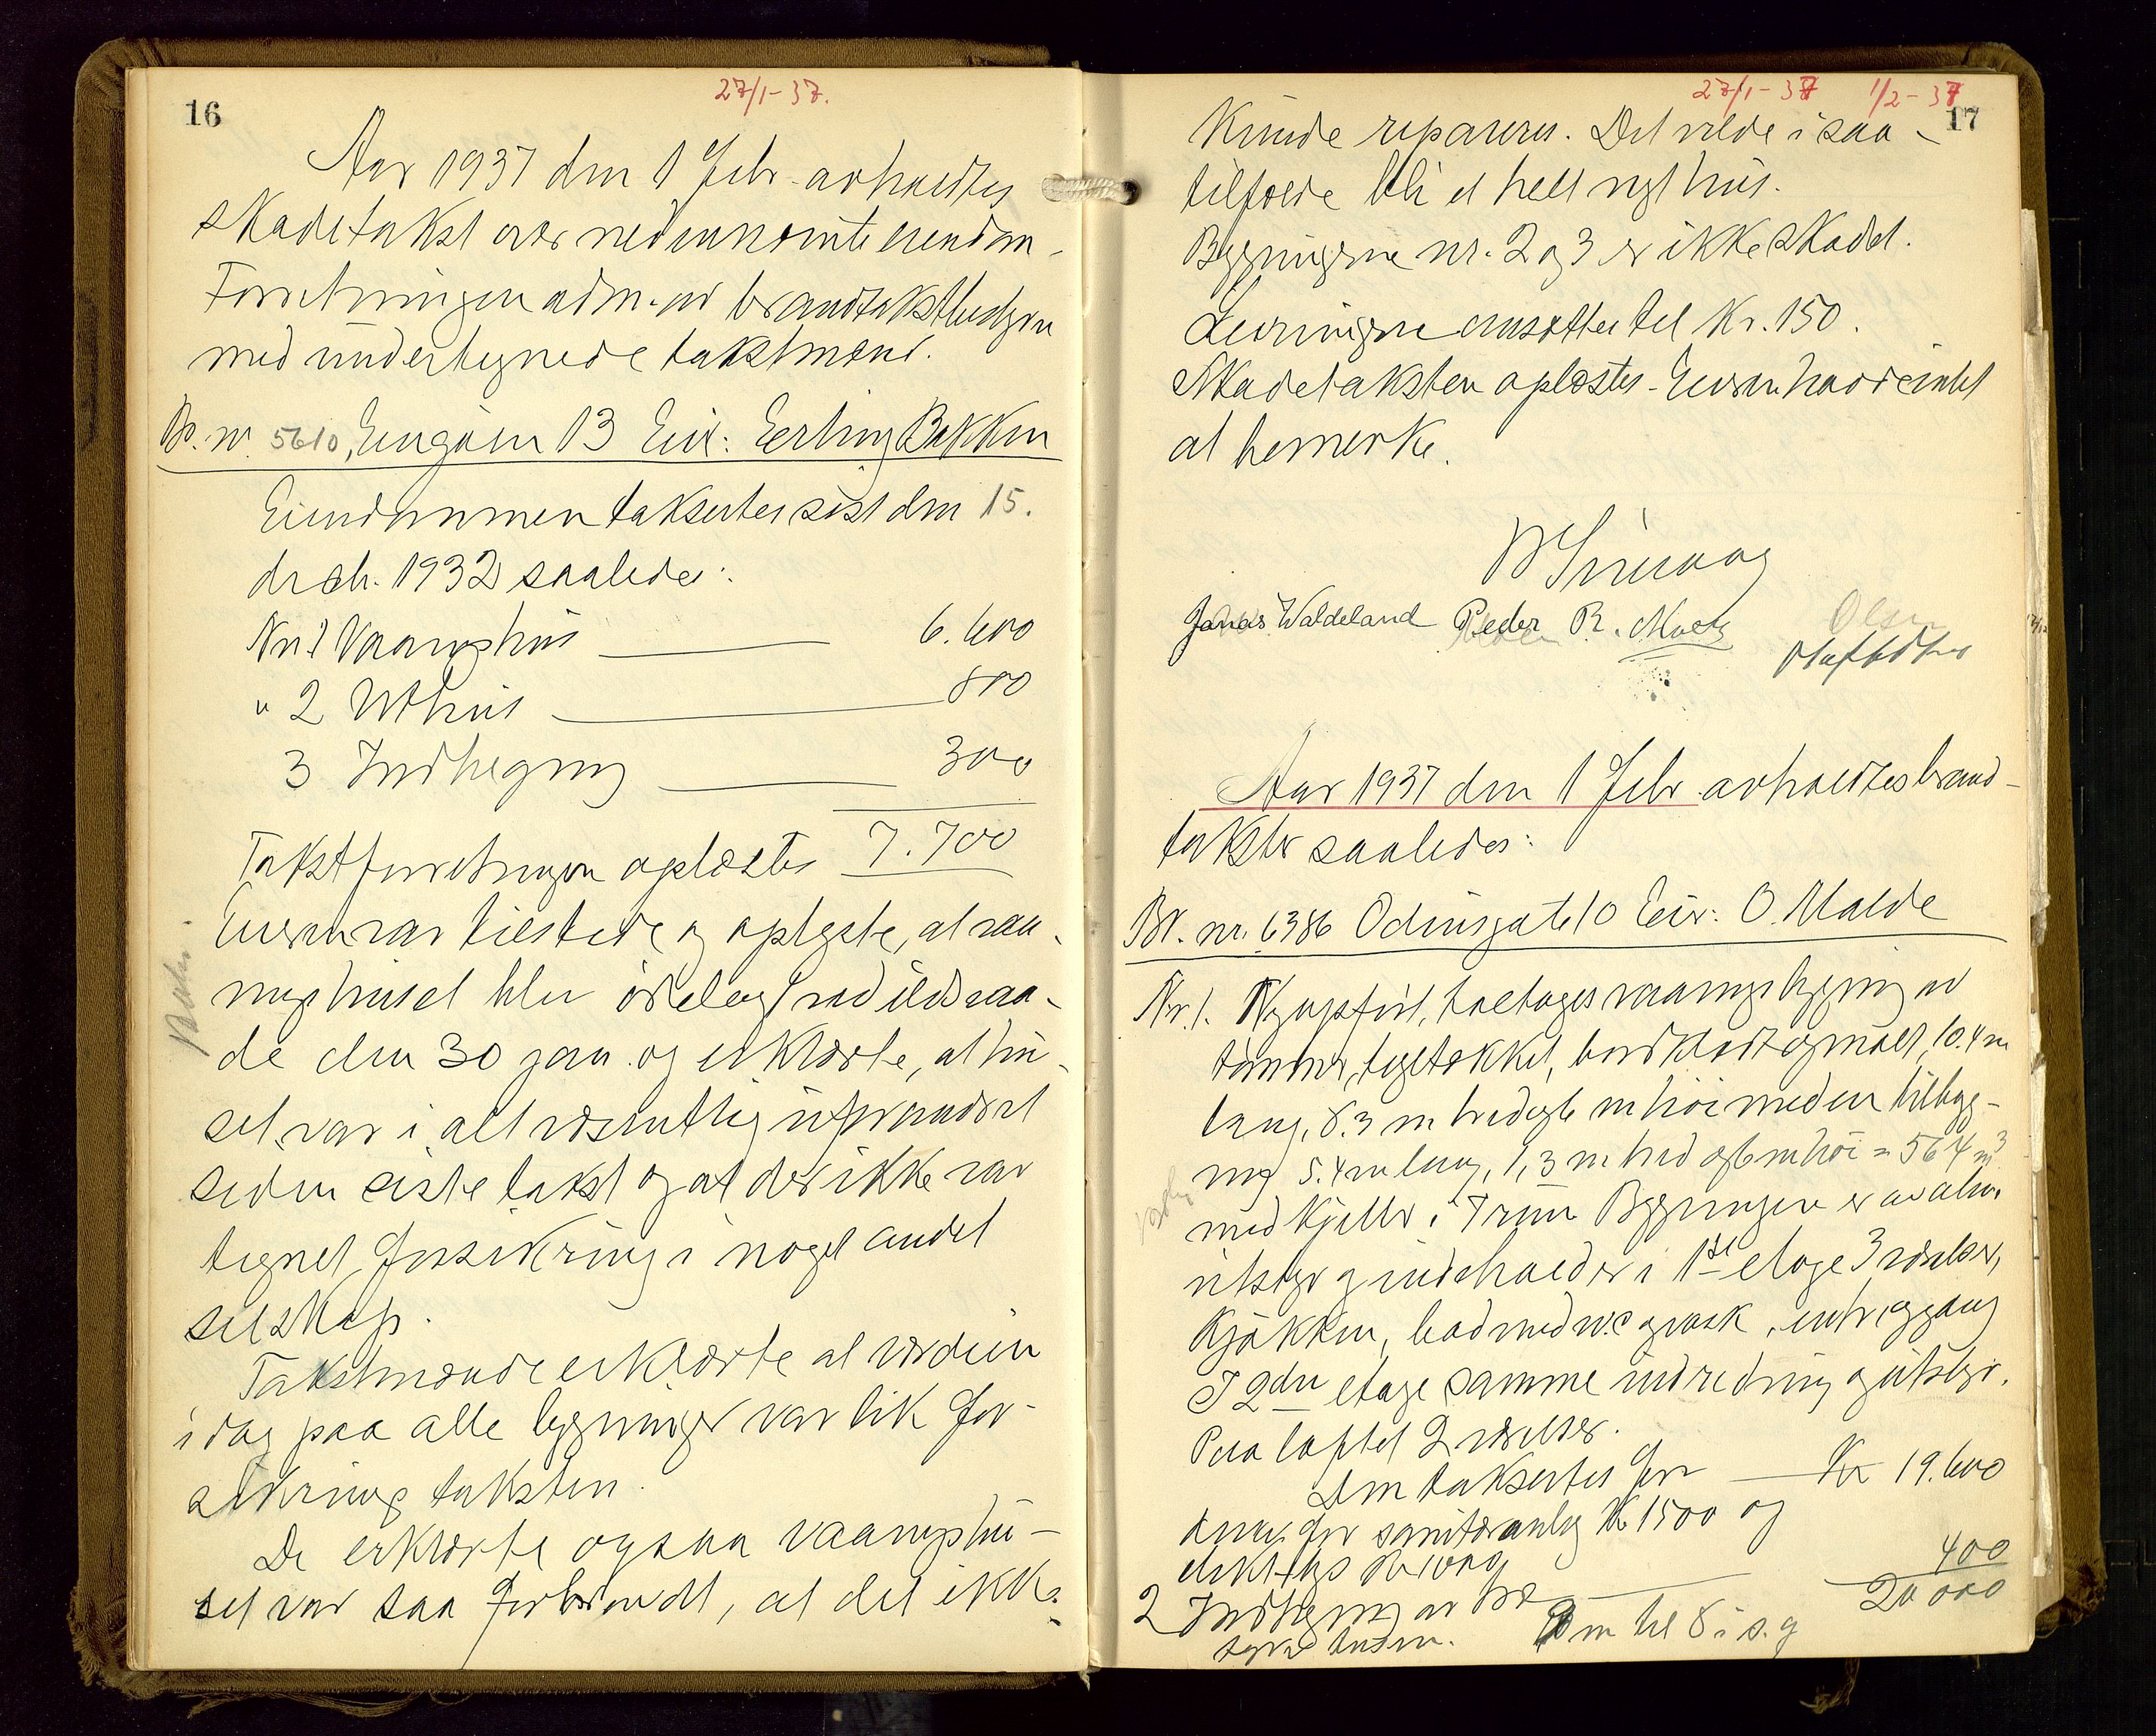 16
27/1-37.
Aar 1937 den 1 Febr. avholdtes
skadetakst over nedennevnte eiendom.
Forretningen adm. av brandtakstbestyrer
med undertegnede takstmænd.
Br. nr. 5610, Engøien 13 Eier: Erling Bakken
Eiendommen taksertes sist den 15.
decb. 1932 saaledes:
Nr. 1 Vaaningshus 6.600
" 2 Uthus 800
3 Indhegning 300
Takstforretningen oplæstes 7.700
Eieren var tilstede og oplyste, at vaa-
ningshuset blev ødelagt ved ildsvaa-
de den 30 jan. og erklærte, at hu-
set var i alt væsentlig uforandret
siden siste takst og at der ikke var
tegnet forsikring i noget andet
selskap.
Takstmændene erklærte at verdien
i dag paa alle bygninger var lik for-
sikrings taksten.
De erklærte ogsaa vaaningshu-
set var saa forbrændt, at det ikke
27/1-37 1/2-37
17
kunde repareres. Det vilde i saa-
tilfælde bli et helt nyt hus.
Bygningerne nr. 2 og 3 er ikke skadet.
Levningene ansættes til Kr. 150.
Skadetaksten oplæstes. Eieren hadde intet
at bemerke.
Jonas Waldeland Peder R.
Olsen
Aar 1937 den 1 Febr. avholdtes brand-
takster saaledes:
Br. nr. 6386 Odinsgate 10 Eier: O. Malde
Nr. 1. Nyopført, toetages vaaningsbygning av
tømmer, tegltækket, bordklædt og malt, 10.4 m
lang, 8.3 m bred og 6 m høi med en tilbyg-
ning 5.4 m lang, 1,3 m bred og 6 m høi = 564 m³
med kjeller i Bygningen er av alm.
utstyr og indeholder i 1ste etage 3 værelser,
kjøkken, bad med w.c. og vask, entre, og gang
I 2den etage samme indredning og utstyr.
Paa loftet 2 værelser.
Den taksertes for Kr 19.600
for sanitæranlæg Kr 1500 og
2 Indhegning av 400
20 000
m til 8 i s. g